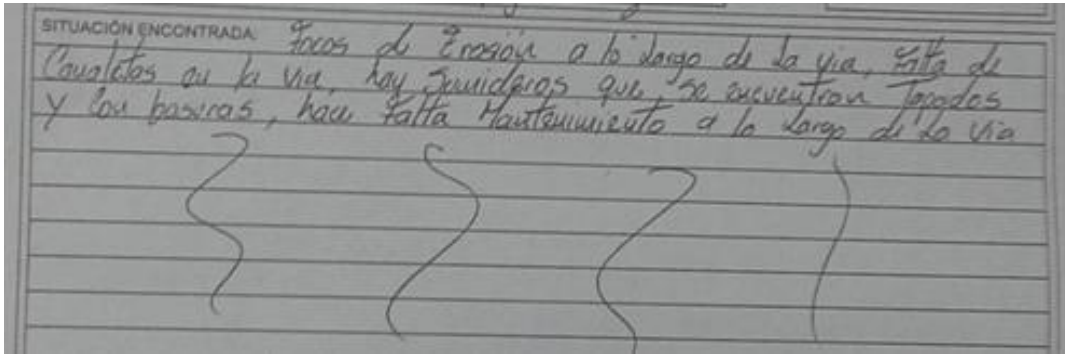 SITUACIÓN ENCONTRADA: Focos de Erosión a lo largo de la via, Falta de
Canaletas en la via, hay Sumideros que se encuentran Tapados
y con basuras, hace Falta Mantenimiento a lo largo de la via